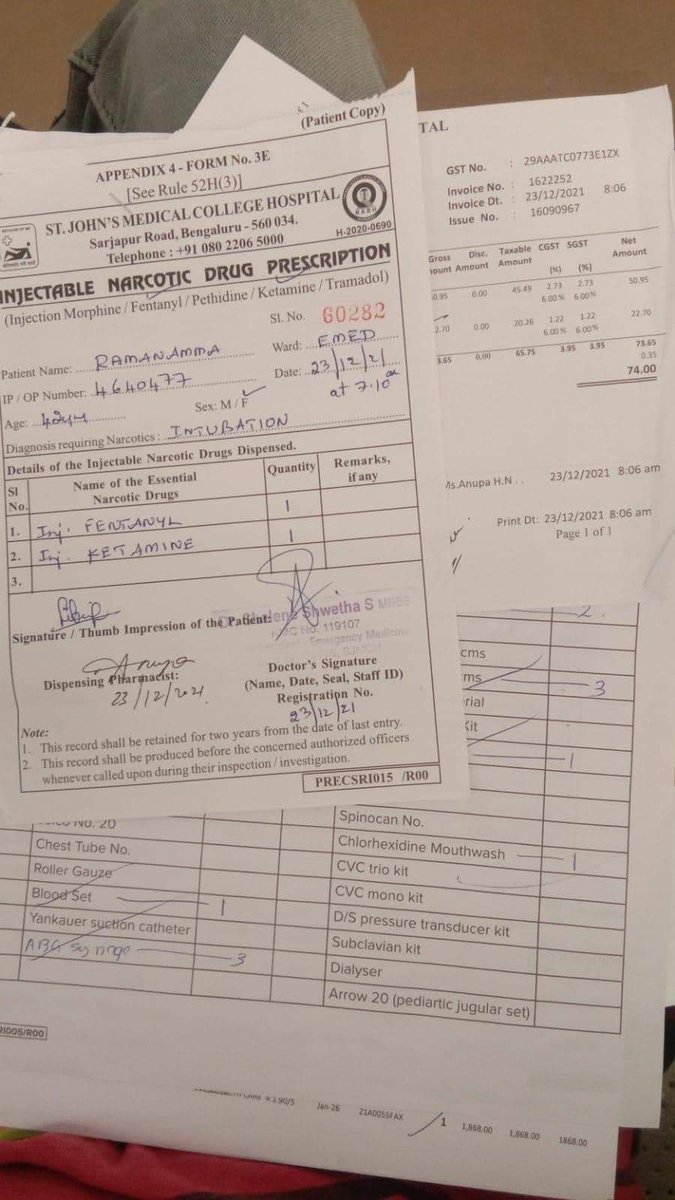 (Patient Copy)
APPENDIX 4 - FORM No. 3E
[See Rule 52H(3)]
ST. JOHN'S MEDICAL COLLEGE HOSPITAL
Sarjapur Road, Bengaluru - 560 034.
Telephone : +91 080 2206 5000
H-2020-0690
INJECTABLE NARCOTIC DRUG PRESCRIPTION
(Injection Morphine / Fentanyl / Pethidine / Ketamine / Tramadol)
Sl. No. 60282
Patient Name: RAMANAMMA Ward: EMED
IP / OP Number: 4640477 Date: 23/12/21
at 7.10
Age: 42 Sex: M / F
Diagnosis requiring Narcotics : INTUBATION
Details of the Injectable Narcotic Drugs Dispensed.
Sl No. Name of the Essential Narcotic Drugs Quantity Remarks, if any
1. Inj. FENTANYL 1
2. Inj. KETAMINE 1
3.
Shwetha S MBBS
119107
Emergency Medicine
Signature / Thumb Impression of the Patient:
Dispensing Pharmacist:
23/12/2021
Doctor's Signature
(Name, Date, Seal, Staff ID)
Registration No.
23/12/21
Note:
1. This record shall be retained for two years from the date of last entry.
2. This record shall be produced before the concerned authorized officers
whenever called upon during their inspection / investigation.
PRECSRI015 /R00
TAL
GST No. : 29AAATC0773E1ZX
Invoice No. : 1622252
Invoice Dt. : 23/12/2021 8:06
Issue No. : 16090967
Gross Disc. Taxable CGST SGST Net
Amount Amount Amount
(%) (%)
0.95 0.00 45.49 2.73 2.73 50.95
6.00% 6.00%
2.70 0.00 20.26 1.22 1.22 22.70
6.00% 6.00%
3.65 0.00 65.75 3.95 3.95 73.65
0.35
74.00
Ms.Anupa H.N . . 23/12/2021 8:06 am
Print Dt: 23/12/2021 8:06 am
Page 1 of 1
2
cms
ms 3
rial
Kit
1
No. 20
Chest Tube No.
Roller Gauze
Blood Set 1
Yankauer suction catheter
ABG syringe 3
Spinocan No.
Chlorhexidine Mouthwash 1
CVC trio kit
CVC mono kit
D/S pressure transducer kit
Subclavian kit
Dialyser
Arrow 20 (pediartic jugular set)
RI005/R00
Jan-26 21A0055FAX 1 1,868.00 1,868.00 1868.00